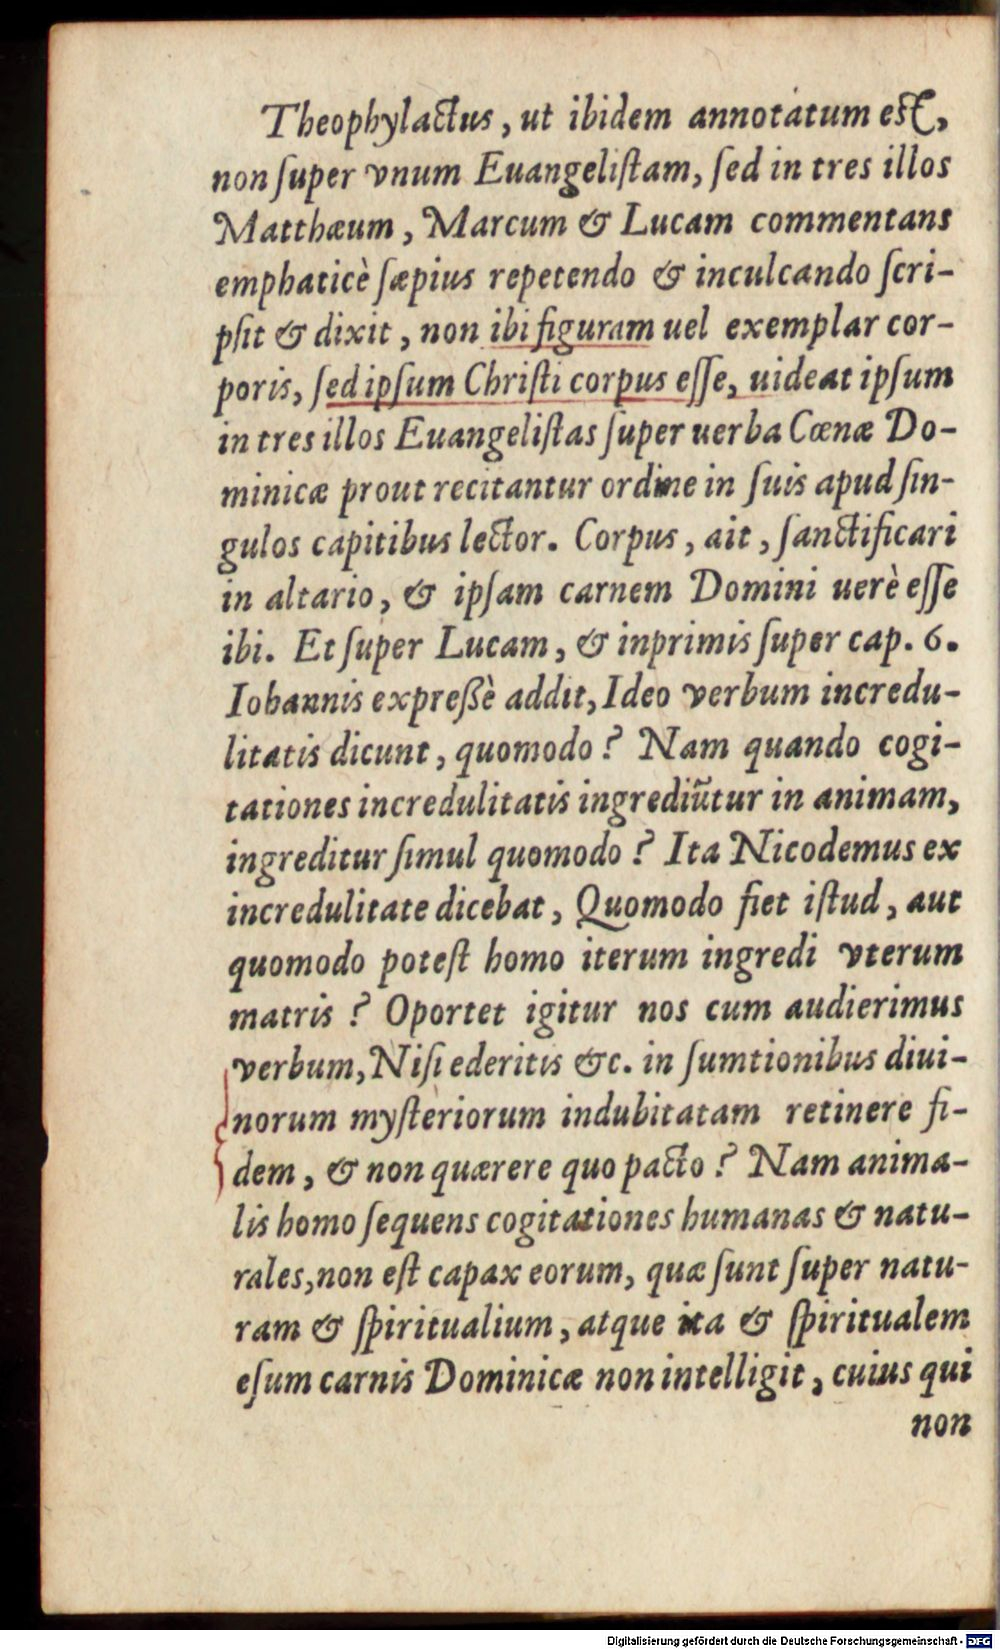 Theophylactus, ut ibidem annotatum est,
non ſuper vnum Euangeliſtam, ſed in tres illos
Matthæum, Marcum & Lucam commentans
emphaticè ſæpius repetendo & inculcando ſcri-
pſit & dixit, non ibi figuram uel exemplar cor-
poris, ſed ipſum Chriſti corpus eſſe, uideat ipſum
in tres illos Euangeliſtas ſuper uerba Cœnæ Do-
minicæ prout recitantur ordine in ſuis apud ſin-
gulos capitibus lector. Corpus, ait, ſanctificari
in altario, & ipſam carnem Domini uerè eſſe
ibi. Et ſuper Lucam, & inprimis ſuper cap. 6.
Iohannis expreßè addit, Ideo verbum incredu-
litatis dicunt, quomodo? Nam quando cogi-
tationes incredulitatis ingrediũtur in animam,
ingreditur ſimul quomodo? Ita Nicodemus ex
incredulitate dicebat, Quomodo fiet iſtud, aut
quomodo poteſt homo iterum ingredi vterum
matris? Oportet igitur nos cum audierimus
verbum, Niſi ederitis &c. in ſumtionibus diui-
norum myſteriorum indubitatam retinere fi-
dem, & non quærere quo pacto? Nam anima-
lis homo ſequens cogitationes humanas & natu-
rales, non eſt capax eorum, quæ ſunt ſuper natu-
ram & ſpiritualium, atque ita & ſpiritualem
eſum carnis Dominicæ non intelligit, cuius qui
non
Digitalisierung gefördert durch die Deutsche Forschungsgemeinschaft - DFG